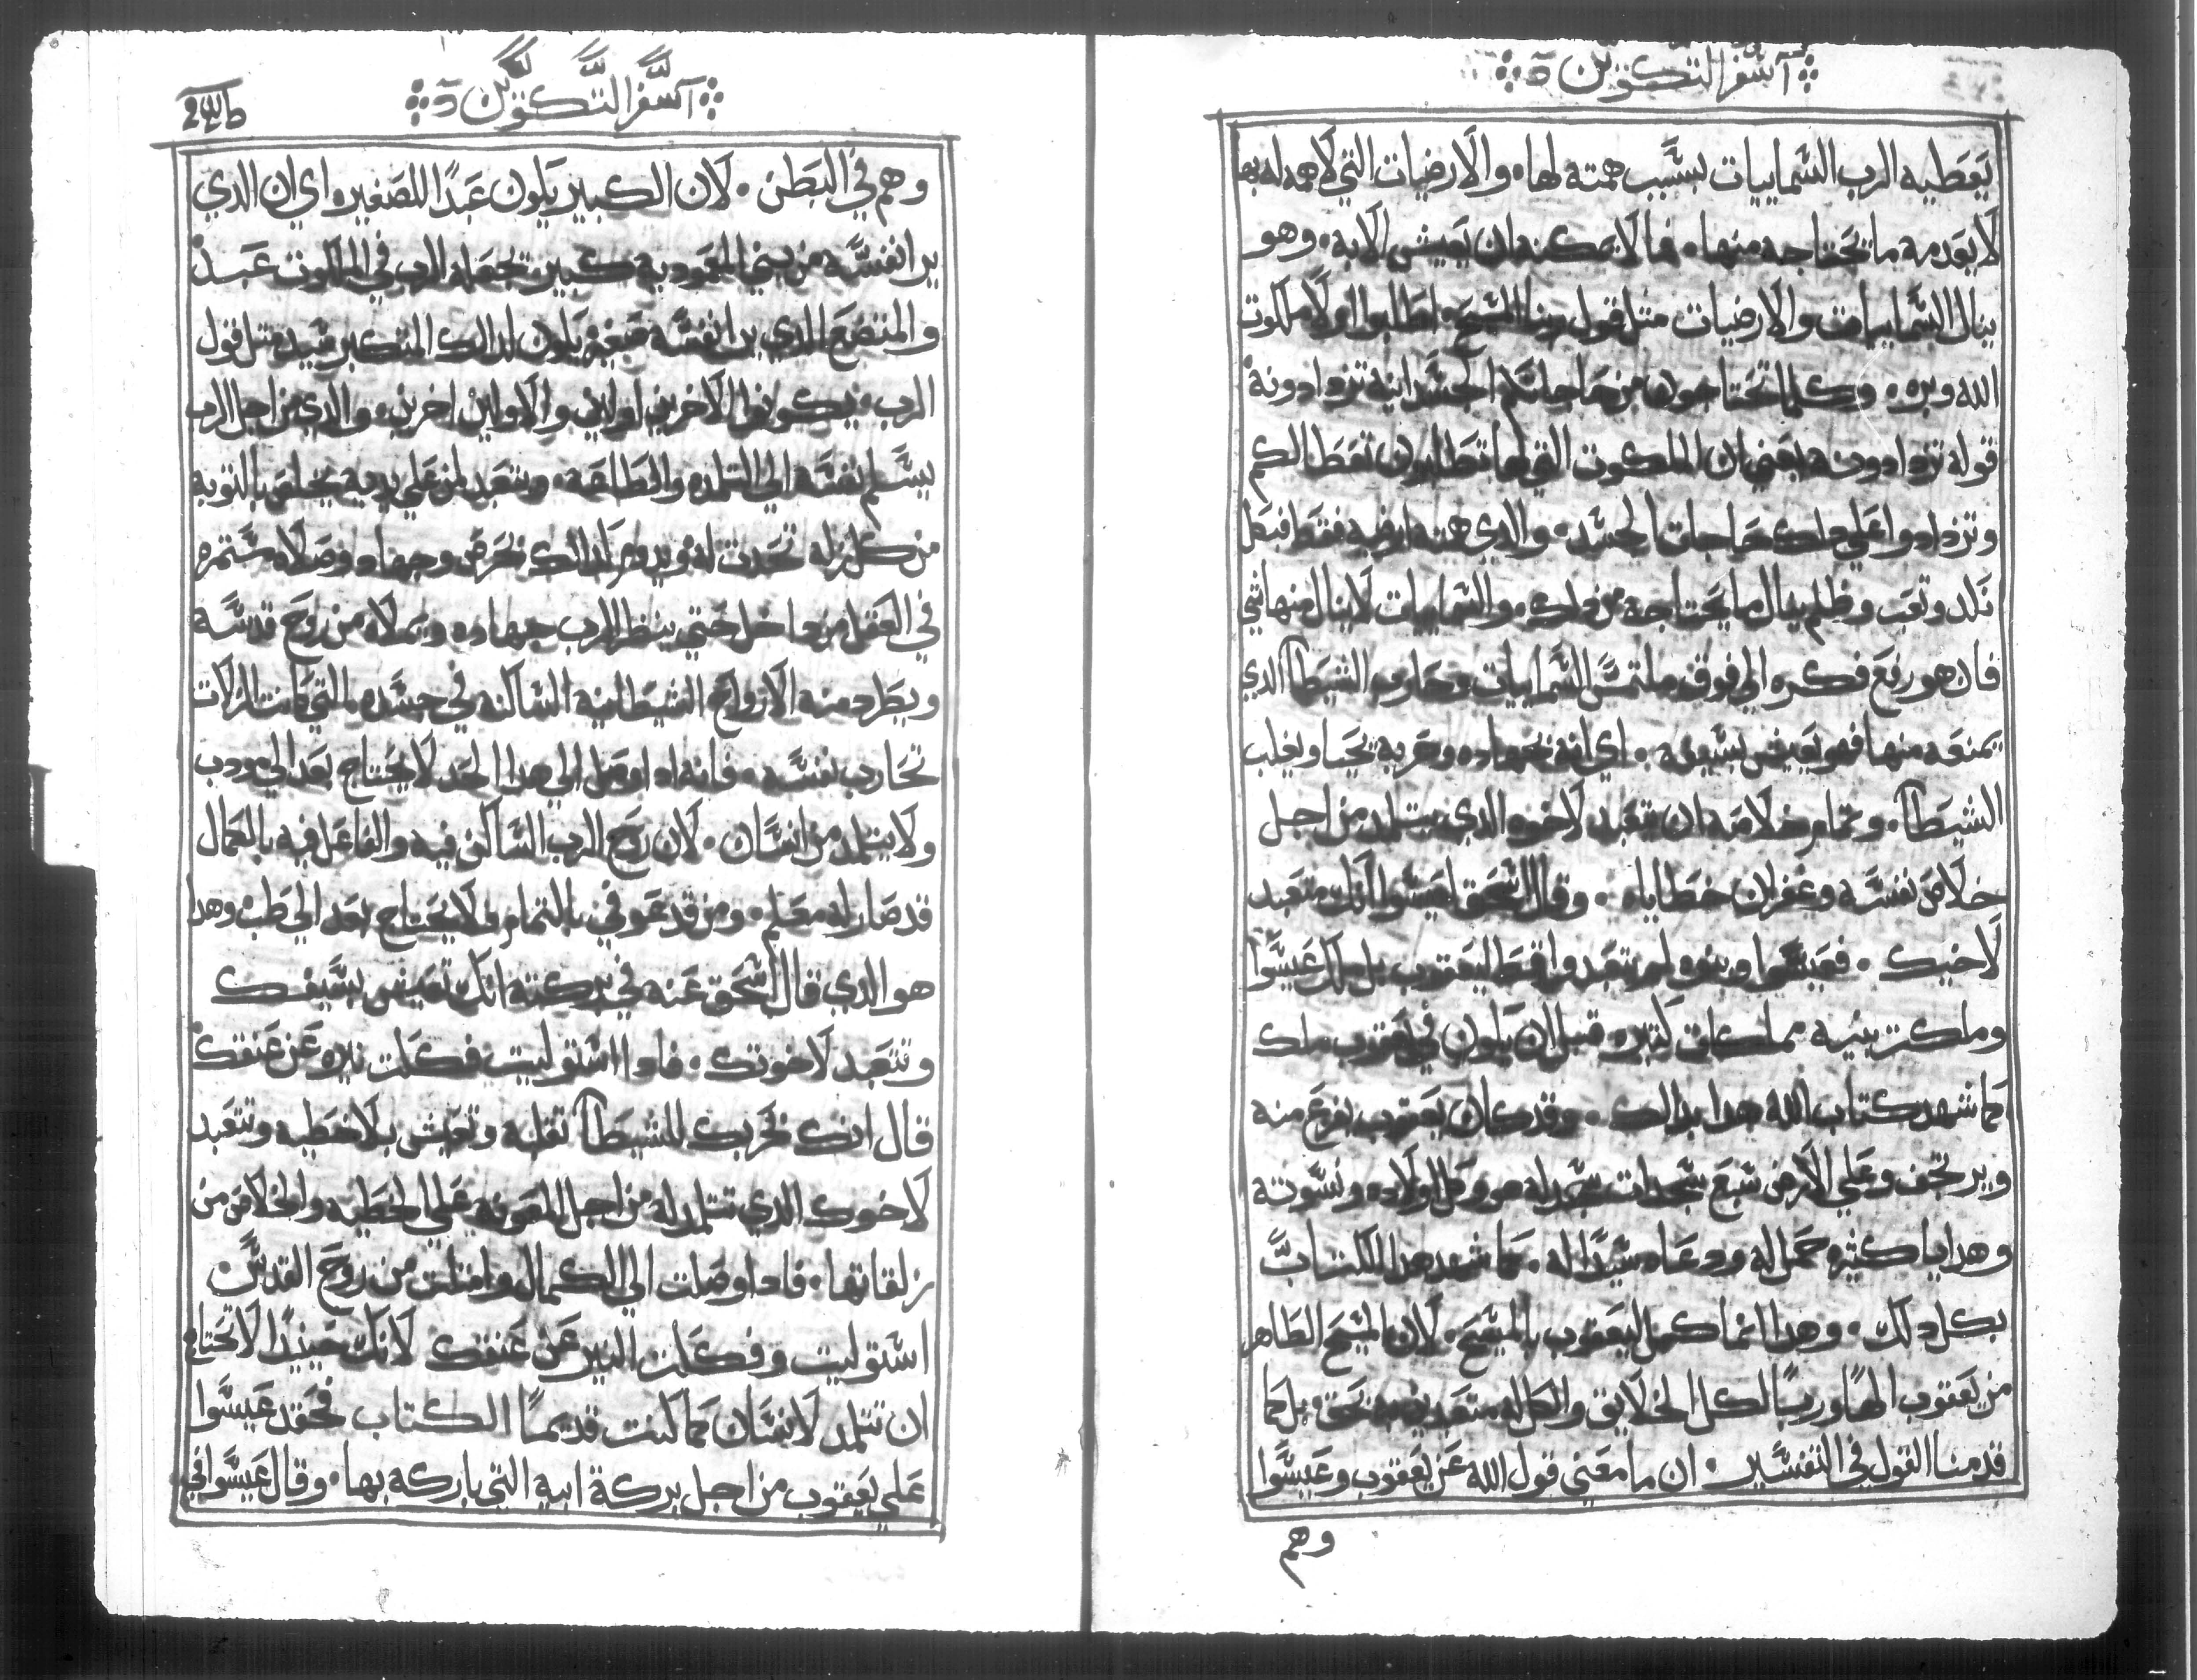 سفر التكوين
يعطيه الرب السماييات بسبب همته لها والارضيات التي لا همه له بها
لا يعدمه ما يحتاجه منها فما لا يمكنه ان يعيش الا به وهو
ينال السماييات والارضيات متل قول ربنا المسيح اطلبوا اولا ملكوت
الله وبره وكلما تحتاجوه من حاجاتكم الجسدانيه تزدادونه
قوله تزدادونه يعني ان الملكوت التي لها تطلبون تعطا لكم
وتزدادوا علي دلك حاجات الجسد والدي همته ارضيه فقط فبكل
نكد وتعب وظلم ينال ما يحتاجه من دلك والسماييات لا ينال منها شي
فان هو رفع فكره الي فوق ملتمس السماييات وحارب الشيطان الدي
يمنعه منها فهو يعيش بسيفه اي انه بجهاده وحربه يحيا ويغلب
الشيطان وتمام خلاصه ان يتعبد لاخوه الدي يتلمد من اجل
خلاص نفسه وغفران خطاياه وقال اسحق لعيسوا انك متعبد
لاخيك فعيسوا وبنوه لم يتعبدوا قط ليعقوب بل ملك عيسوا
وملكت بنيه مملكات كتيره قبل ان يكون في يعقوب ملك
كما شهد كتاب الله هدا بدالك وقد كان يعقوب يفزع منه
ويرتجف وعلي الارض سبع سجدات سجد له هو وكل اولاده ونسوته
وهدايا كثيره حمل له ودعاه سيدا له كما شهد هدا الكتاب
بكل دلك وهدا انما كمل ليعقوب بالمسيح لان المسيح الظاهر
من يعقوب الها وربا لكل الخلايق والكل له متعبدين بحق بل كما
قدمنا القول في التفسير ان ما معني قول الله عن يعقوب وعيسوا
وهم
سفر التكوين
وهم في البطن لان الكبير يكون عبدا للصغير اي ان الدي
يرا نفسه من بني المعموديه كبير يجعله الرب في الملكوت عبد
والمتضع الدي يرا نفسه صغير يكون لدالك المتكبر سيد متل قول
الرب يكونوا الاخرين اولين والاولين اخرين والدي من اجل الرب
يسلم نفسه الي التلمده والطاعه ويتعبد لمن علي يديه يخلص بالتوبه
من كل زله تحدت له ويدوم لدالك بحرص وجهاد وصلاه مستمره
في العقل من داخل حتي ينظر الرب جهاده ويملاه من روح قدسه
ويطرد منه الارواح الشيطانيه الساكنه في جسده التي كانت الزلات
تحارب نفسه فانه ادا وصل الي هدا الحد لا يحتاج بعد الي مودب
ولا يتلمد من انسان لان روح الرب الساكن فيه والفاعل فيه بالكمال
قد صار له معلم ومن قد عوفي بالتمام لا يحتاج بعد الي طب وهدا
هو الدي قال اسحق عنه في بركته انك تعيش بسيفك
وتتعبد لاخوتك فادا استوليت فككت نيره عن عنقك
قال انك بحربك للشيطان تقتله وتعيش بلا خطيه وتتعبد
لاخوك الدي تتلمد له من اجل المعونه علي الخطيه والخلاص من
زلقاتها فادا وصلت الي الكمال وامتلت من روح القدس
استوليت وفككت النير عن عنقك لانك حينيد لا تحتاج
ان تتلمد لانسان كما كنت قديما الكتاب فحقد عيسوا
علي يعقوب من اجل بركة ابيه التي باركه بها وقال عيسوا في